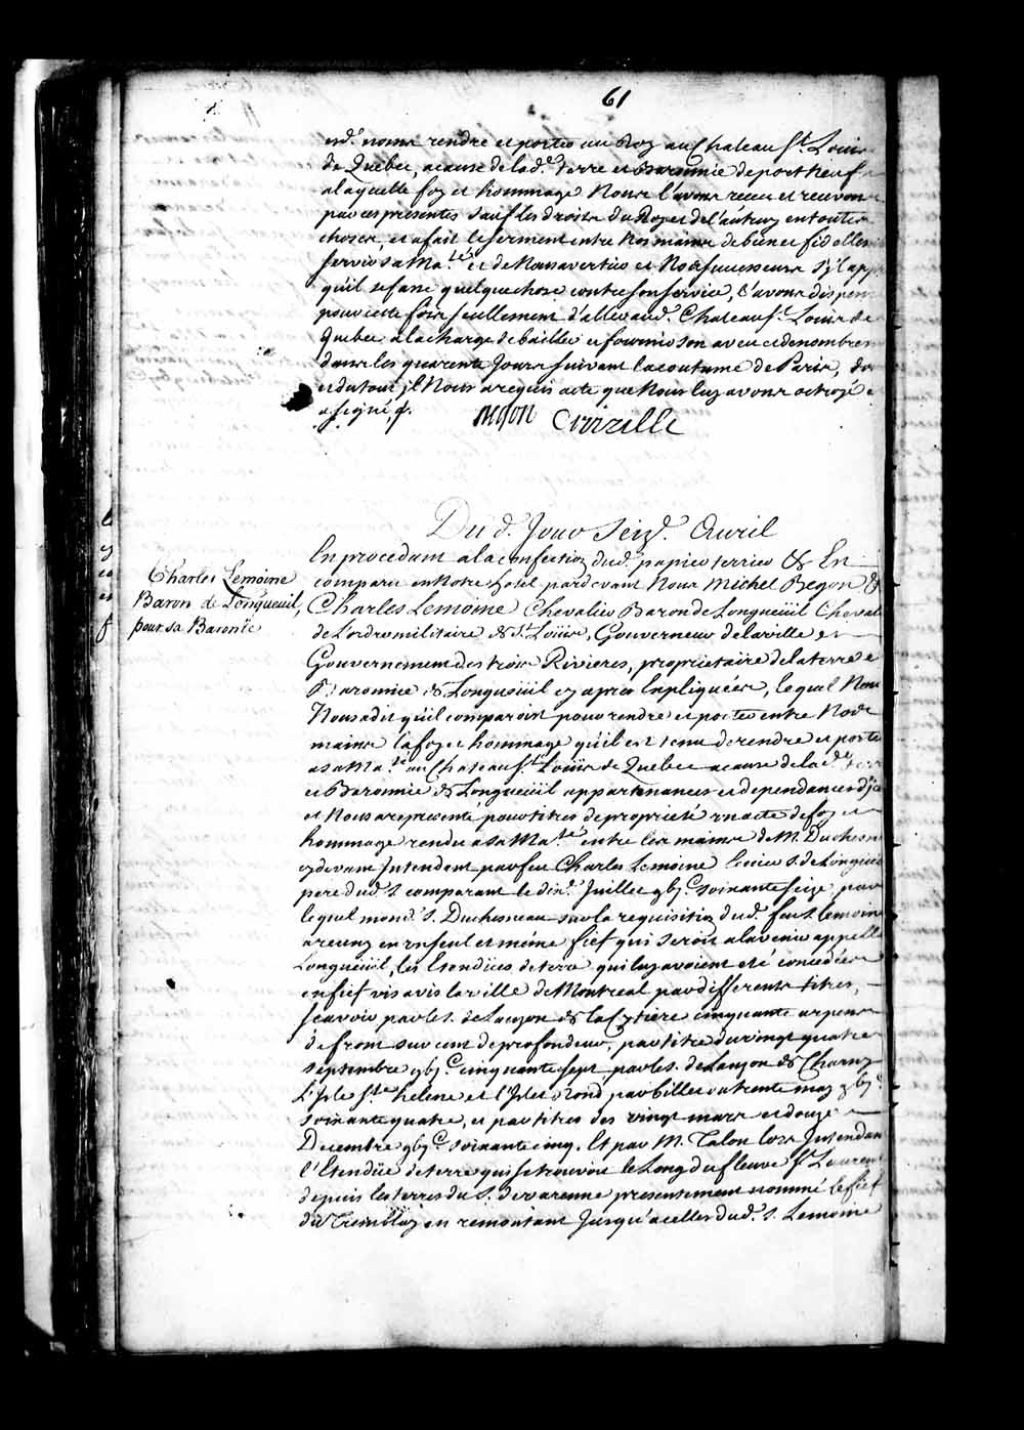 61
aud. nom rendre et porter au Roy au Chateau St. Louis
de Quebec, acause de lad.e terre et Baronnie de portneuf
a laquelle foy et hommage Nous l'avons receu et recevons
par ces presentes sauf les droits du Roy et de l'autruy en toutes
choses, et a fait le serment entre Nos mains de bien et fidellement
servir sa Ma.té et de Nous avertir et Nos successeurs s'il app
qu'il se fasse quelque chose contre son service, l'avons dispen
pour cette fois seullement d'aller aud. Chateau St. Louis de
Quebec a la charge de bailler et fournir son aveu et denombrem
dans les quarente Jours suivant la coutume de Paris, do
et du tout jl Nous a requis acte que Nous luy avons octroyé e
a signé, ∫.
Begon Croizille
Du d. Jour Seizē. Avril
Charles Lemoine
Baron de Longueuil,
pour sa Baronie
En procedant a la confection dud. papier terrier &c. Est
comparu en Notre hotel pardevant Nous Michel Begon &
Charles Lemoine Chevalier Baron de Longueüil Cheval
de l'ordre militaire de St. Loüis, Gouverneur de la ville et
Gouvernement des trois Rivieres, proprietaire de la terre e
Baronnie de Longueüil cy apres Expliquées, lequel Nous
Nous a dit qu'il comparoist pour rendre et porter entre Nos
mains la foy et hommage qu'il est tenu de rendre et porter
a sa Ma.té au Chateau St. Loüis de Quebec acause de lad.e terre
et Baronnie de Longueüil appartenances et dependances d'jc
et Nous a representé, pour titres de proprieté un acte de foy et
hommage rendu a sa Ma.té entre les mains de M. Duchesn
cy devant Jntendant par feu Charles Lemoine Ecuier s. de Longueuil
pere dud. s. comparant le dix.e Juillet gbj.c soixante seize, par
lequel mond. s. Duchesneau sur la requisition dud. feu s. Lemoine
a reuny en un seul et méme fief qui seroit a l'avenir appellé
Longueüil, les Etendües de terre qui luy avoient eté concedées
en fief vis avis la ville de Montreal par differents titres,
sçavoir par le s. de Lauzon de la Cytiere cinquante arpens
de front sur cent de profondeur, par titre du vingt quatre
septembre gbj.c cinquante sept, par le s. de Lauzon de Charny
L'Jsle Ste. helene et l'Jslet Rond par billet du trente may gbj.c
soixante quatre, et par titres des vingt mars et douze
Decembre gbj.c soixante cinq. Et par M. Talon lors Jntendan
l'Etendüe de terre qui se trouvoit le Long du fleuve St. Laurent
depuis les terres du S. de varenne presentement nommé le fief
du Tremblay en remontant Jusqu'a celles dud. s. Lemoine